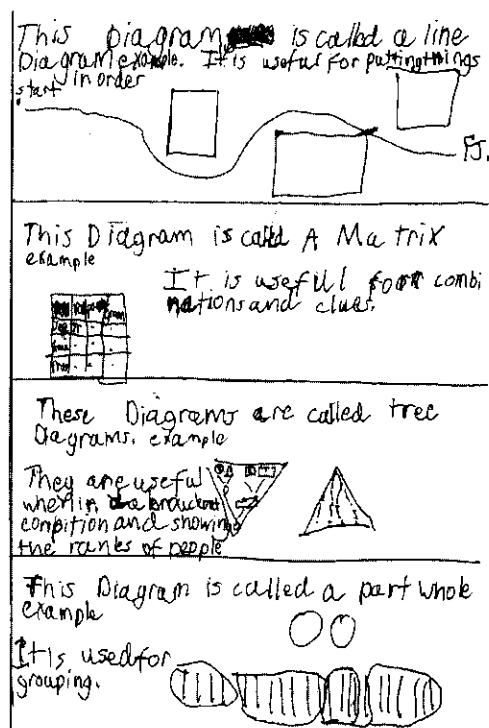 This Diagram is called a line
Diagram example. It is useful for putting things
in order
start
This Diagram is called A Matrix
example
It is usefull for combi
nations and clues.
These Diagrams are called tree
Diagrams. example
They are useful
when in a
and showing
the ranks of people
This Diagram is called a part whole
example
It is used for
grouping.